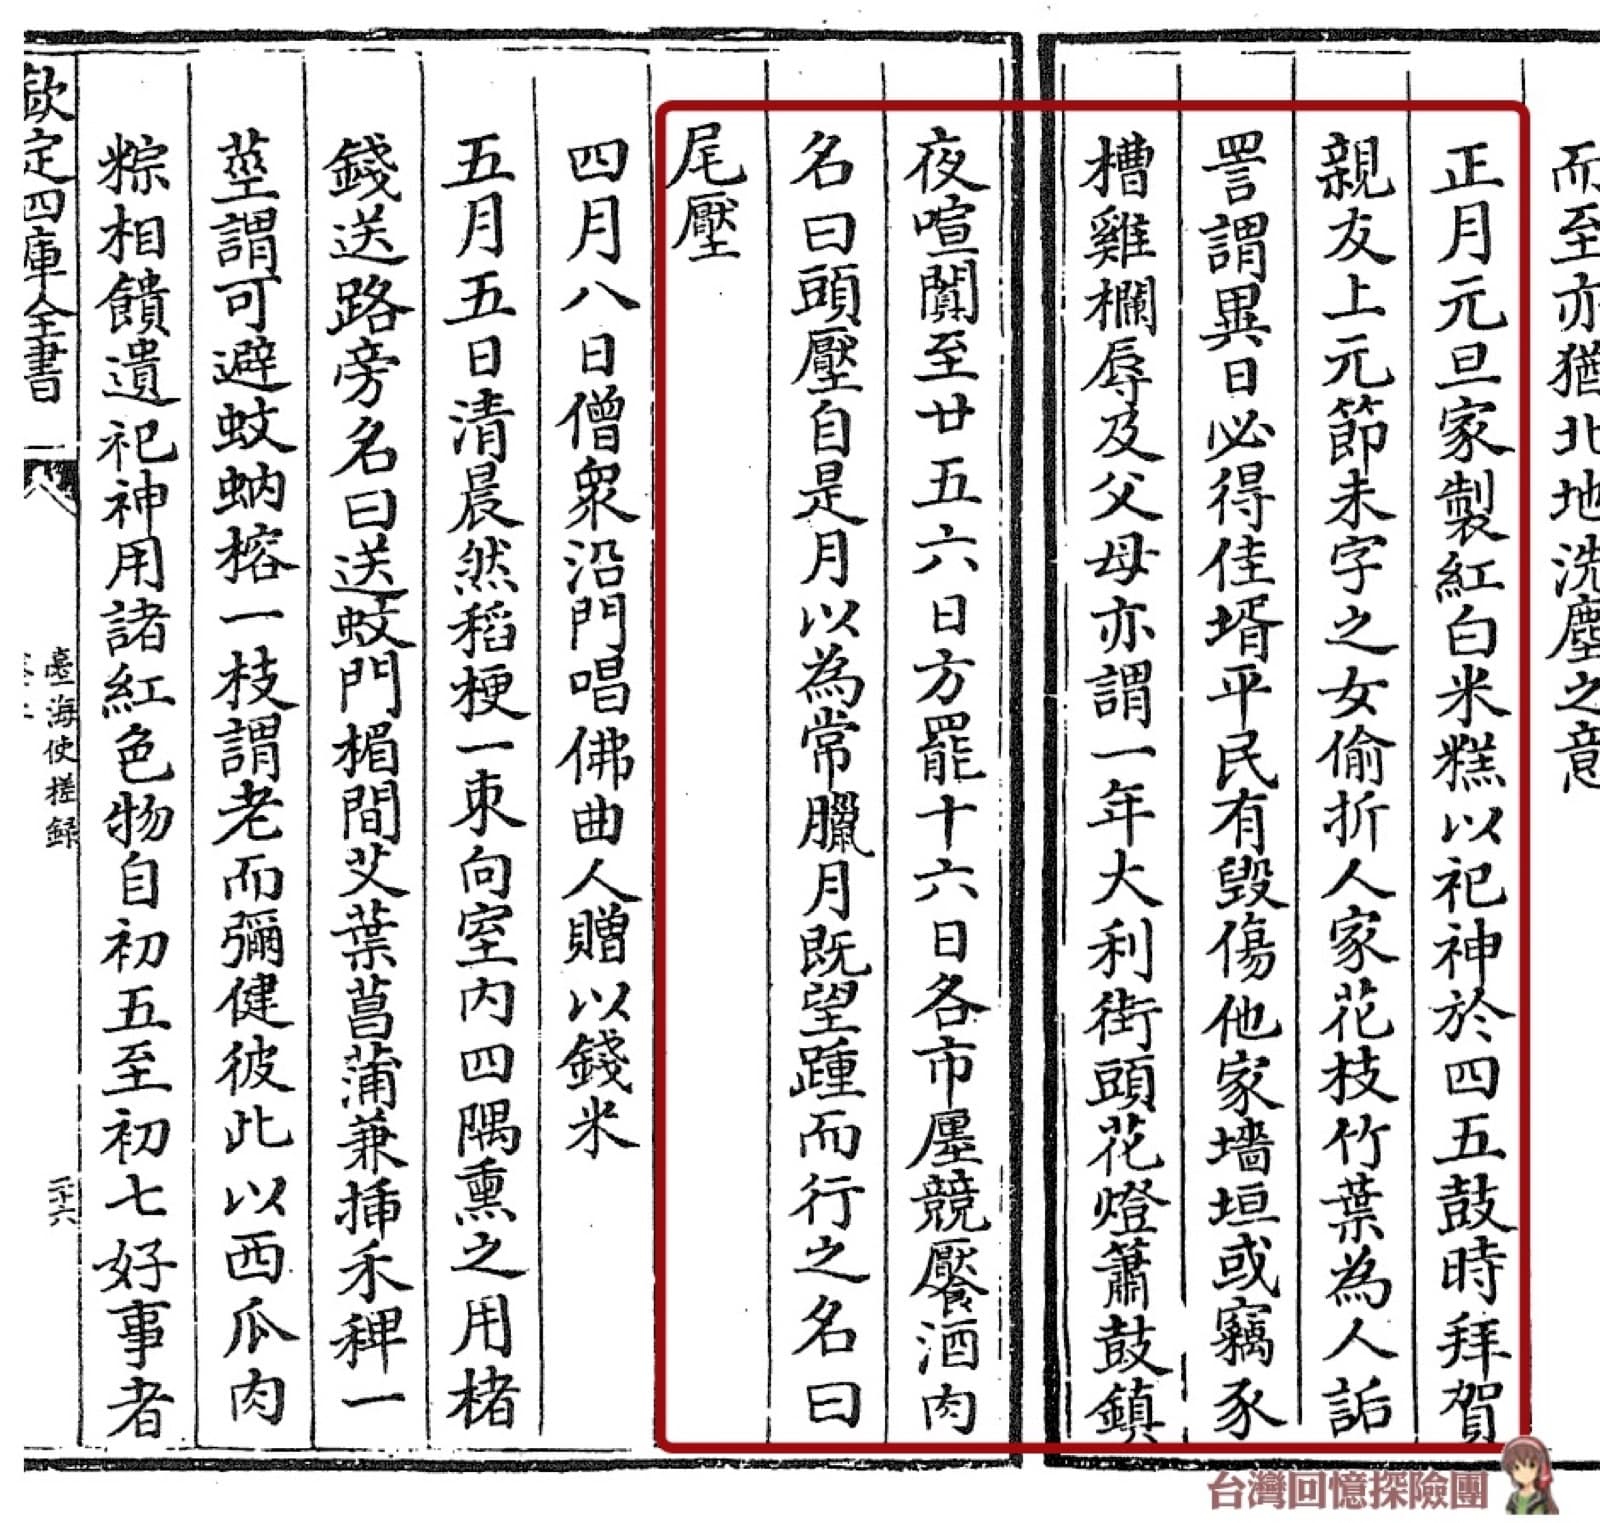 而至亦猶北地洗塵之意
正月元旦家製紅白米糕以祀神於四五鼓時拜賀
親友上元節未字之女偷折人家花枝竹葉為人詬
詈謂異日必得佳壻平民有毀傷他家墻垣或竊豕
槽雞欄辱及父母亦謂一年大利街頭花燈簫鼓鎮
夜喧闐至廿五六日方罷十六日各市廛競饜酒肉
名曰頭壓自是月以為常臘月既望踵而行之名曰
尾壓
四月八日僧衆沿門唱佛曲人贈以錢米
五月五日清晨然稻梗一束向室内四隅熏之用楮
錢送路旁名曰送蚊門楣間艾葉菖蒲兼插禾稗一
莖謂可避蚊蚋榕一枝謂老而彌健彼此以西瓜肉
粽相饋遺祀神用諸紅色物自初五至初七好事者
欽定四庫全書
臺海使槎録
二十六
台灣回憶探險團